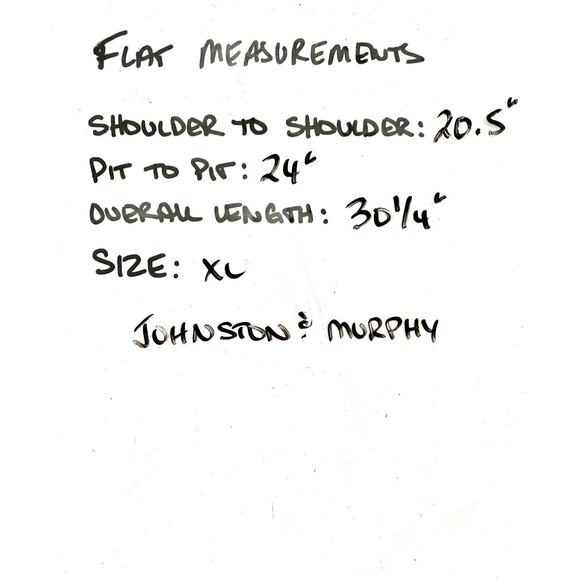 FLAT MEASUREMENTS
SHOULDER TO SHOULDER: 20.5"
PIT TO PIT: 24"
OVERALL LENGTH: 30 1/4"
SIZE: XL
JOHNSTON & MURPHY